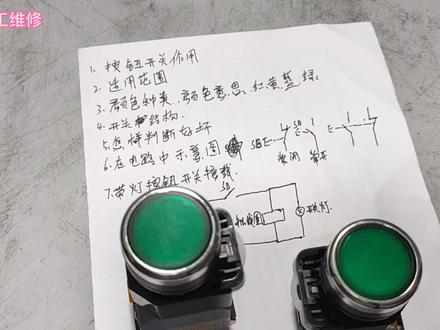 工维修
1. 按钮开关作用
2. 适用范围
3. 颜色种类、颜色意思、红黄蓝绿.
4. 开关结构.
5. 怎样判断好坏
6. 在电路中示意图
SB E
常闭
常开
7. 带灯按钮开关接线.
SB